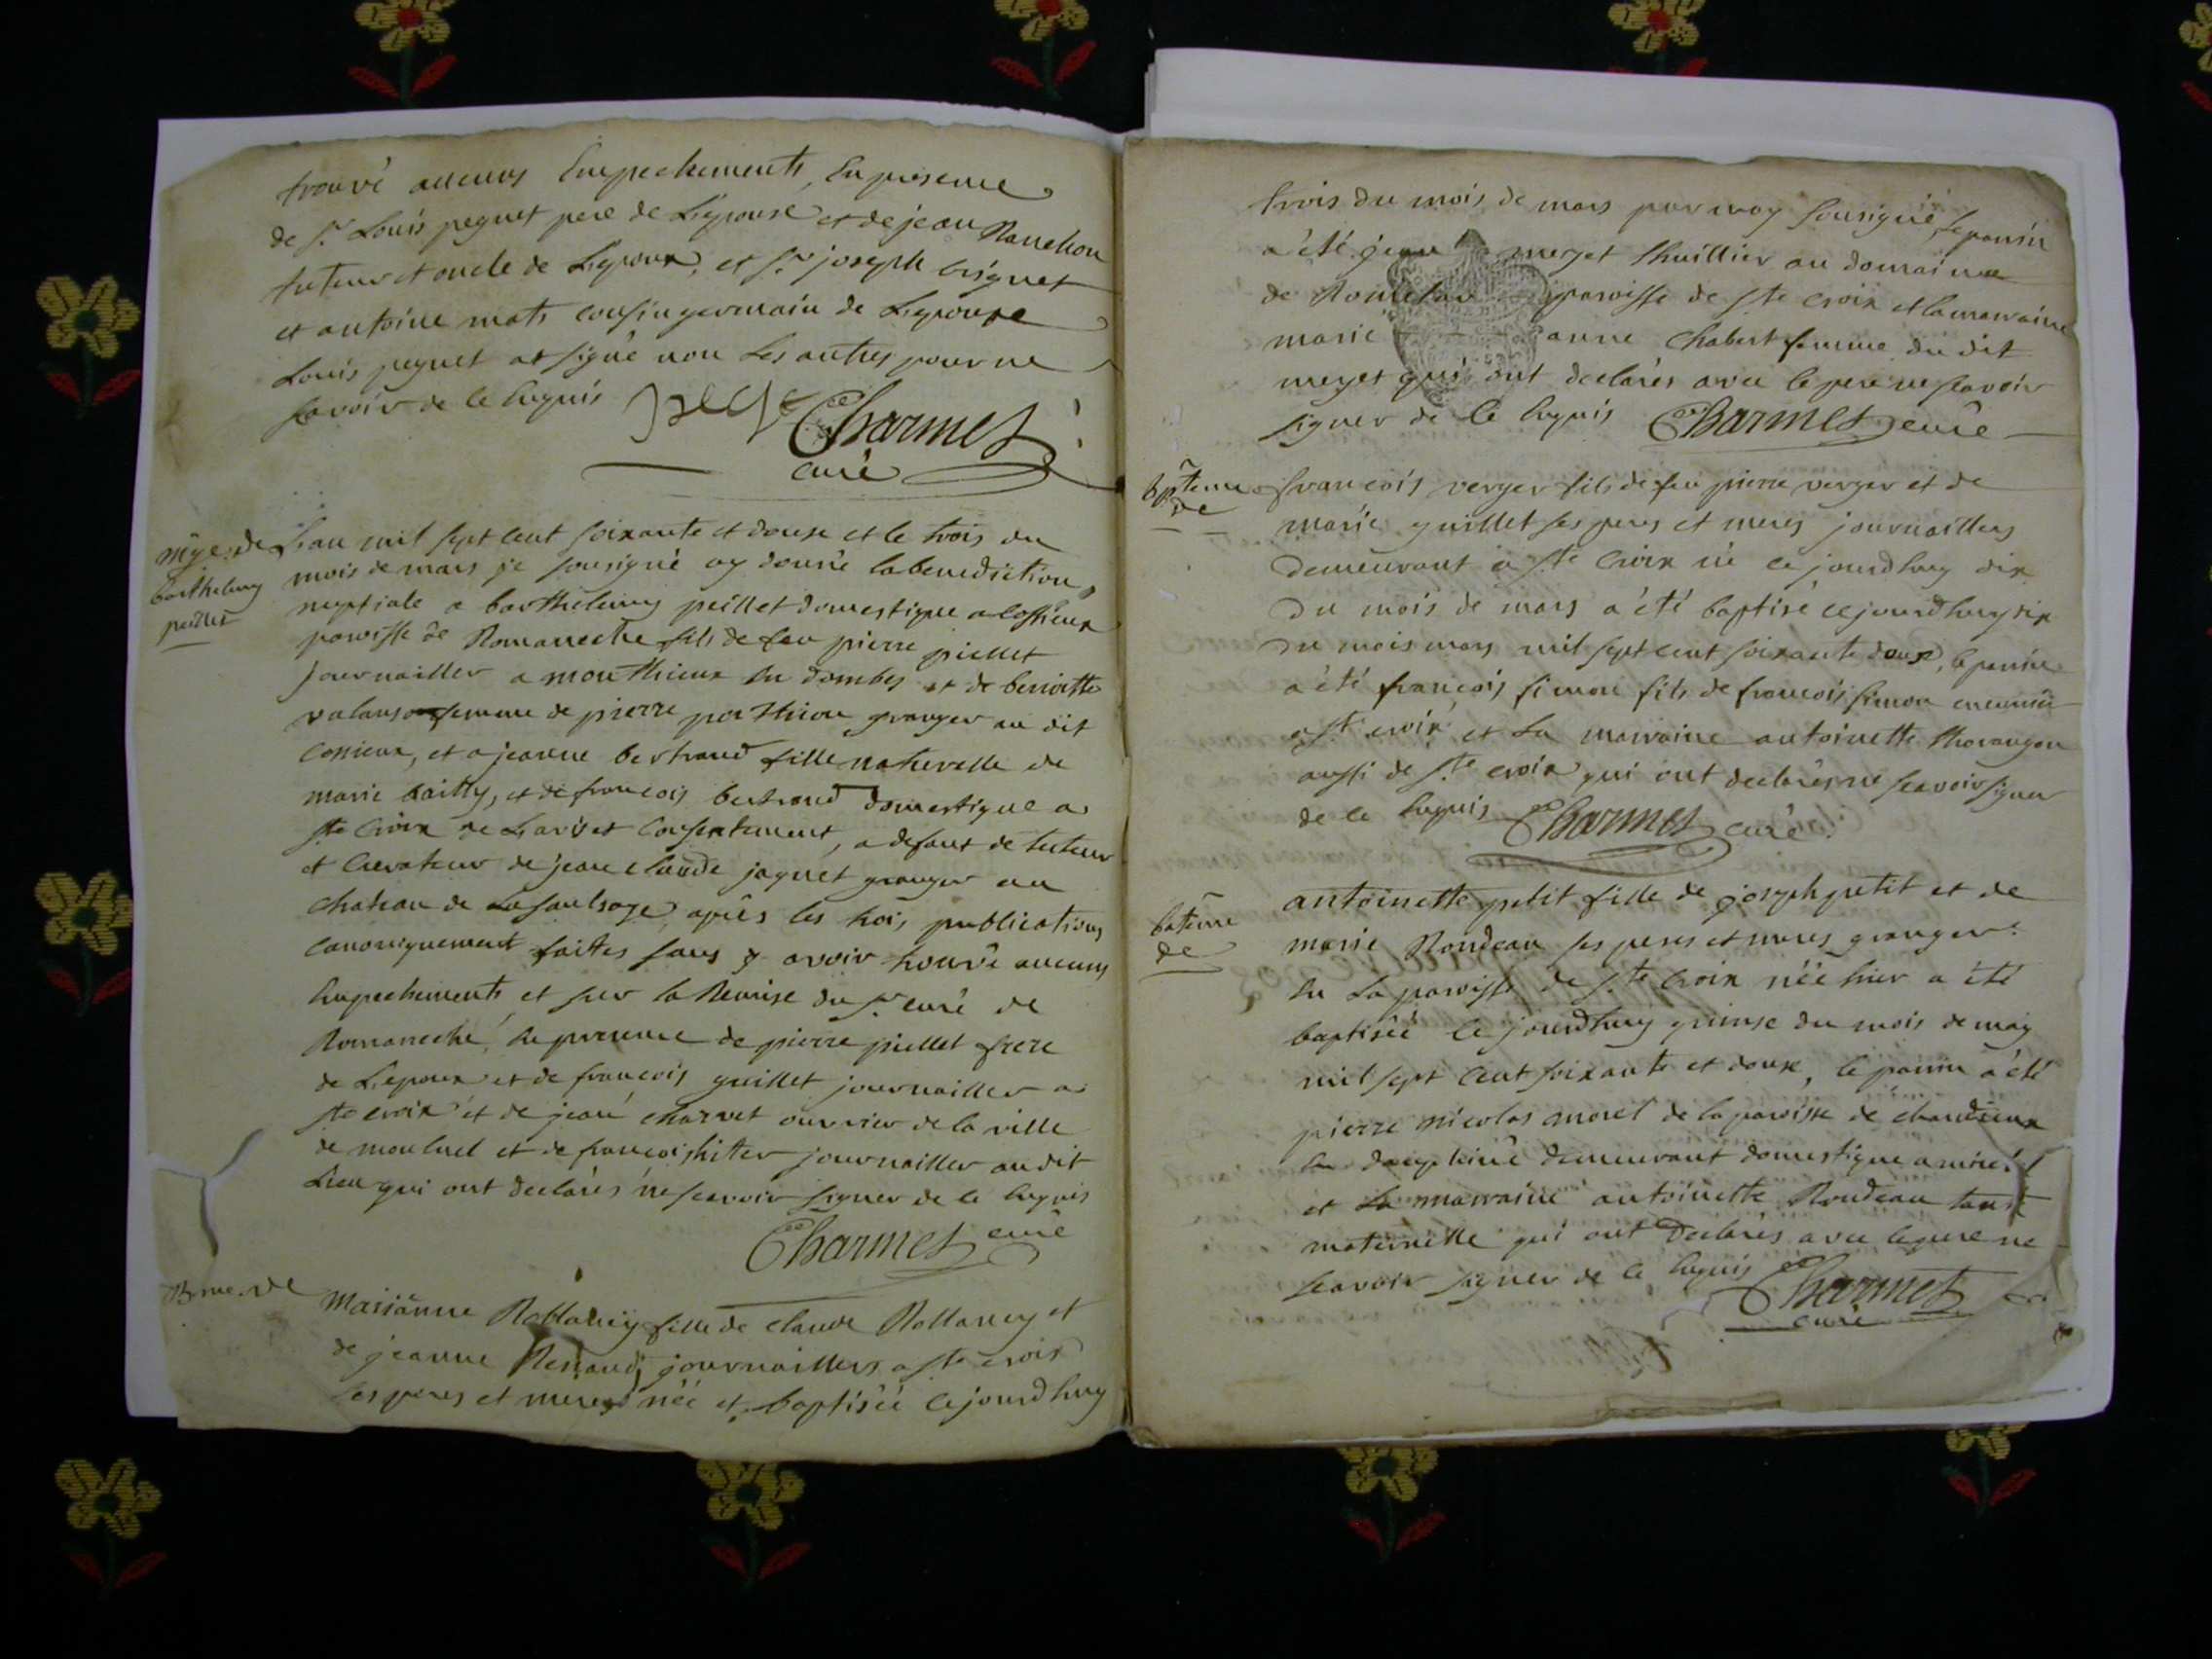 trouvé aucuns Empechements, En presence
de Sr Louis peguet pere de L'epouse et de jean Ranchon
tuteur et oncle de L'epoux, et Sr joseph briguet
et antoine mati cousin germain de L'epouse
Louis peguet at signé non Les autres pour ne
savoir de ce Enquis
Charmet
curé
barthelemy
peillet
L'an mil sept cent soixante et douse et le trois du
mois de mars je sousigné ay donné la benediction
nuptiale a barthelemy peillet domestique a
paroisse de Romaneche fils de feu pierre piellet
journailler a monthieux En dombes et de benoitte
femme de pierre granger au dit
Cossieux, et a jeanne bertrand fille naturelle de
marie bailly, et de francois bertrand domestique a
ste Croix de L'avis et Consentement, a defaut de tuteur
et Curateur de jean claude jaquet granger au
chateau de après les trois publications
canoniquement faites sans y avoir trouvé aucuns
Empechements et sur la Remise du Sr curé de
Romaneche, En presence de pierre piellet frere
de L'epoux et de francois guillet journailler a
ste croix et de jean charvet ouvrier de la ville
de monluel et de francois journailler au dit
Lieu qui ont declarés ne scavoir signer de ce Enquis
Charmet curé
B me. de
Marianne fille de claude Rollancy et
de jeanne Renaud, journaillers a ste croix
ses peres et meres née et baptisée cejourdhuy
trois du mois de mars par moy sousigné, le parrin
a été jean merget thuillier au domaine
de paroisse de ste croix et la marraine
marie anne Chabert femme du dit
merget qui ont declarés avec le pere ne scavoir
signer de ce Enquis Charmet curé
bpteme
de
francois verger fils de feu pierre verger et de
marie guillet ses peres et meres journaillers
Demeurant a ste Croix né ce jourdhuy six
Du mois de mars a été baptisé cejourdhuy six
Du mois mars mil sept cent soixante douse, le parrin
a été françois simon fils de francois simon
a ste croix et La marraine antoinette
aussi de ste croix qui ont declarés ne scavoir signer
de ce Enquis Charmet curé
bateme
de
antoinette petit fille de joseph petit et de
marie Rondeau ses peres et meres grangers
En La paroisse de ste Croix née hier a été
baptisée ce jourdhuy quinse du mois de may
mil sept Cent soixante et douse, le parrin a été
pierre nicolas morel de la paroisse de
En dauphiné demeurant domestique a
et La marraine antoinette Rondeau tante
maternelle qui ont Declarés avec le pere ne
scavoir signer de ce Enquis Charmet
curé